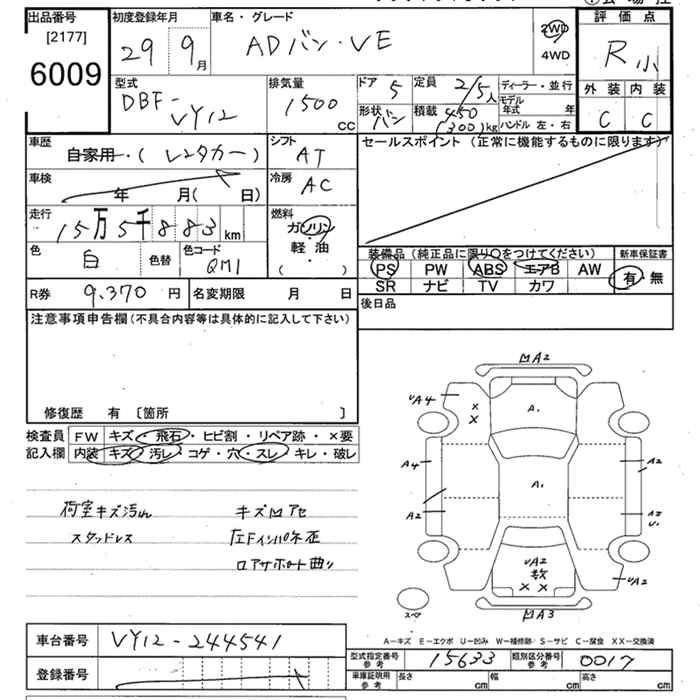 出品番号 初度登録年月 車名・グレード 評価点
[2177] 29 9月 ADバン・VE 2WD
6009 4WD R小
型式 排気量 ドア 定員 ディーラー・並行 外装 内装
DBF- 5 2/5人 モデル年式 年
VY12 1500cc 形状 バン 積載 450(300)kg ハンドル 左・右 C C
車歴 シフト セールスポイント(正常に機能するものに限ります)
自家用・(レンタカー) AT
車検 冷房
年 月( 日) AC
走行 燃料
15万5千883km ガソリン
色 色替 色コード 軽油
白 QM1 ( )
装備品(純正品に限り○をつけてください) 新車保証書
PS PW ABS エアB AW 有・無
SR ナビ TV カワ
R券 9,370円 名変期限 月 日 後日品
注意事項申告欄(不具合内容等は具体的に記入して下さい)
修復歴 有 〔箇所 〕
検査員 FW キズ・飛石・ヒビ割・リペア跡・×要
記入欄 内装 キズ・汚レ・コゲ・穴・スレ・キレ・破レ
荷室キズ汚れ キズ凹アセ
スタッドレス
ロアサポート曲り
凹A2
UA4
A.
A4
A2
A.
A2
A2
U.
UA2
数
UA2
スペア
凹A3
A-キズ E-エクボ U-凹み W-補修跡 S-サビ C-腐食 XX-交換済
車台番号 VY12-244541
型式指定番号 参考 15633 類別区分番号 参考 0017
登録番号
車庫証明用 参考 長さ cm 幅 cm 高さ cm